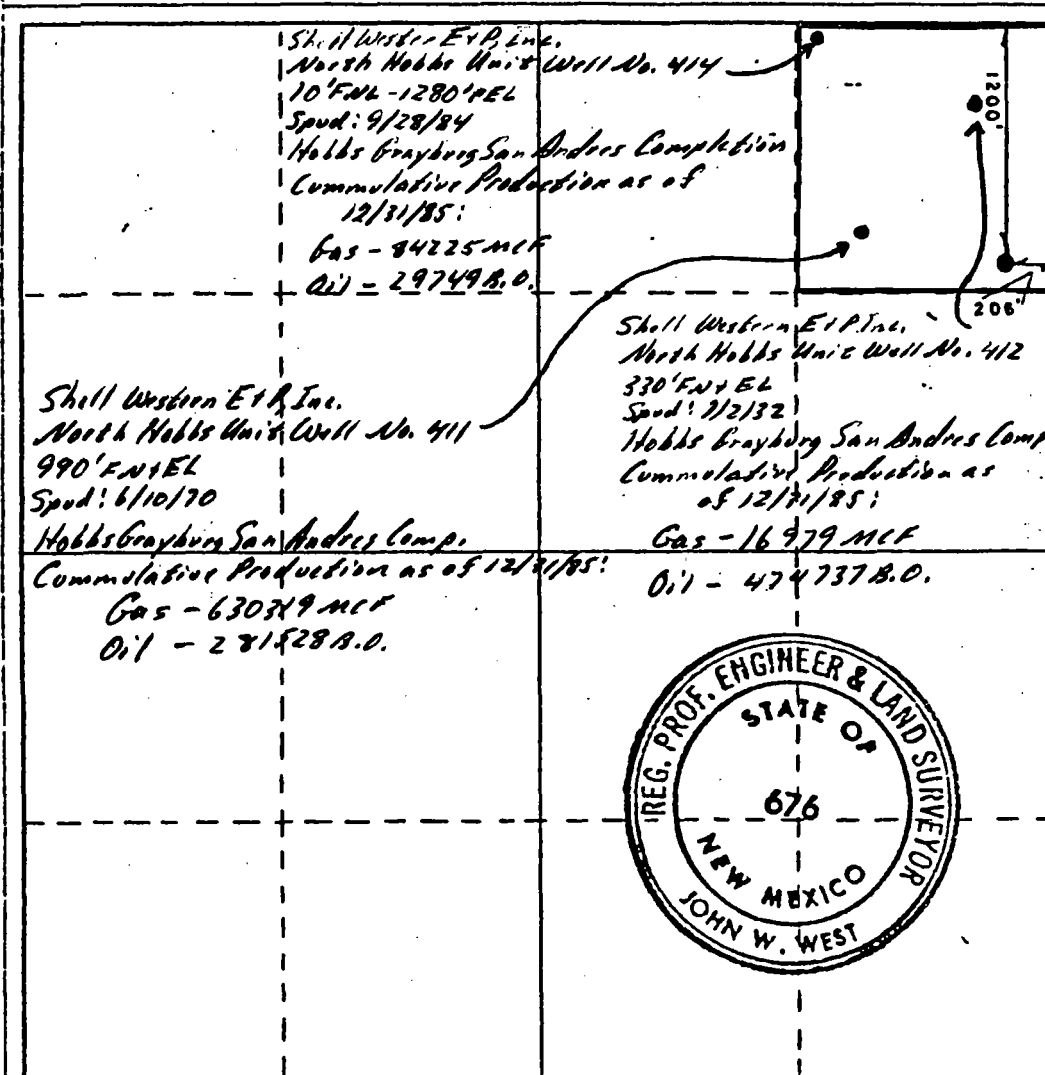 Shell Western E+P, Inc.
North Hobbs Unit Well No. 414
10' FNL - 1280' FEL
Spud: 9/28/84
Hobbs Grayburg San Andres Completion
Cummulative Production as of
12/31/85:
Gas - 84225 MCF
Oil - 29749 B.O.
1200'
206'
Shell Western E+P. Inc.
North Hobbs Unit Well No. 412
330' FN+EL
Spud: /2/32
Hobbs Grayburg San Andres Comp
Cummulative Production as
of 12/31/85:
Gas - 16979 MCF
Oil - 474737 B.O.
Shell Western E+P, Inc.
North Hobbs Unit Well No. 411
990' FN+EL
Spud: 6/10/70
Hobbs Grayburg San Andres Comp.
Cummulative Production as of 12/31/85:
Gas - MCF
Oil - B.O.
REG. PROF. ENGINEER & LAND SURVEYOR
STATE OF
676
NEW MEXICO
JOHN W. WEST